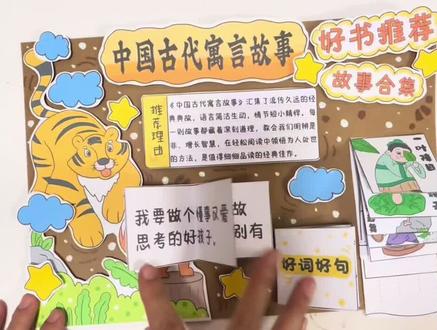 中国古代寓言故事
好书推荐
故事合集
推荐理由
《中国古代寓言故事》汇集了流传久远的经
典典故，语言简洁生动，情节短小精悍，每
一则故事都蕴着深刻道理，教会我们明辨是
非、增长智慧，在轻松阅读中领悟为人处世
的方法，是值得细细品读的经典佳作。
一叶障目
我要做个懂事又爱
思考的好孩子。
故
别有
好词好句